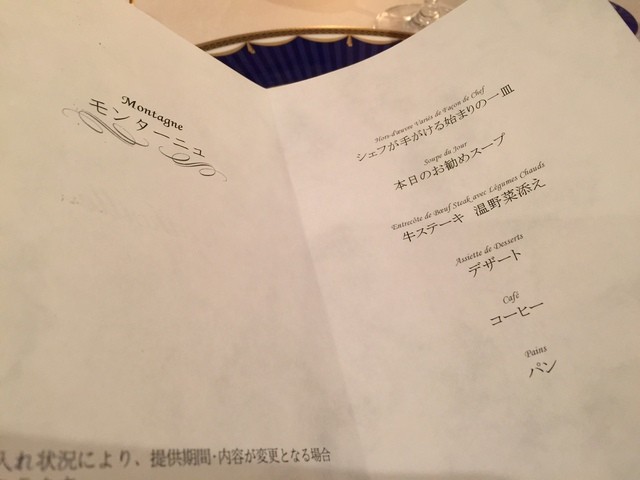 Montagne
モンターニュ
入れ状況により、提供期間・内容が変更となる場合
Hors-d'œuvre Variés de Façon de Chef
シェフが手がける始まりの一皿
Soupe du Jour
本日のお勧めスープ
Entrecôte de Bœuf Steak avec Légumes Chauds
牛ステーキ 温野菜添え
Assiette de Desserts
デザート
Café
コーヒー
Pains
パン